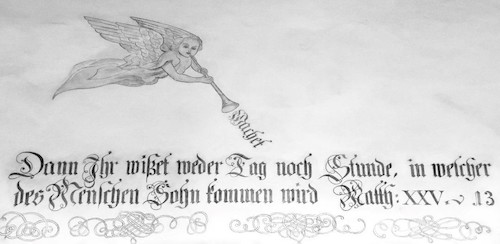 Wachet
Dann Ihr wißet weder Tag noch Stunde, in welcher
des Menschen Sohn kommen wird Matth: XXV. v 13